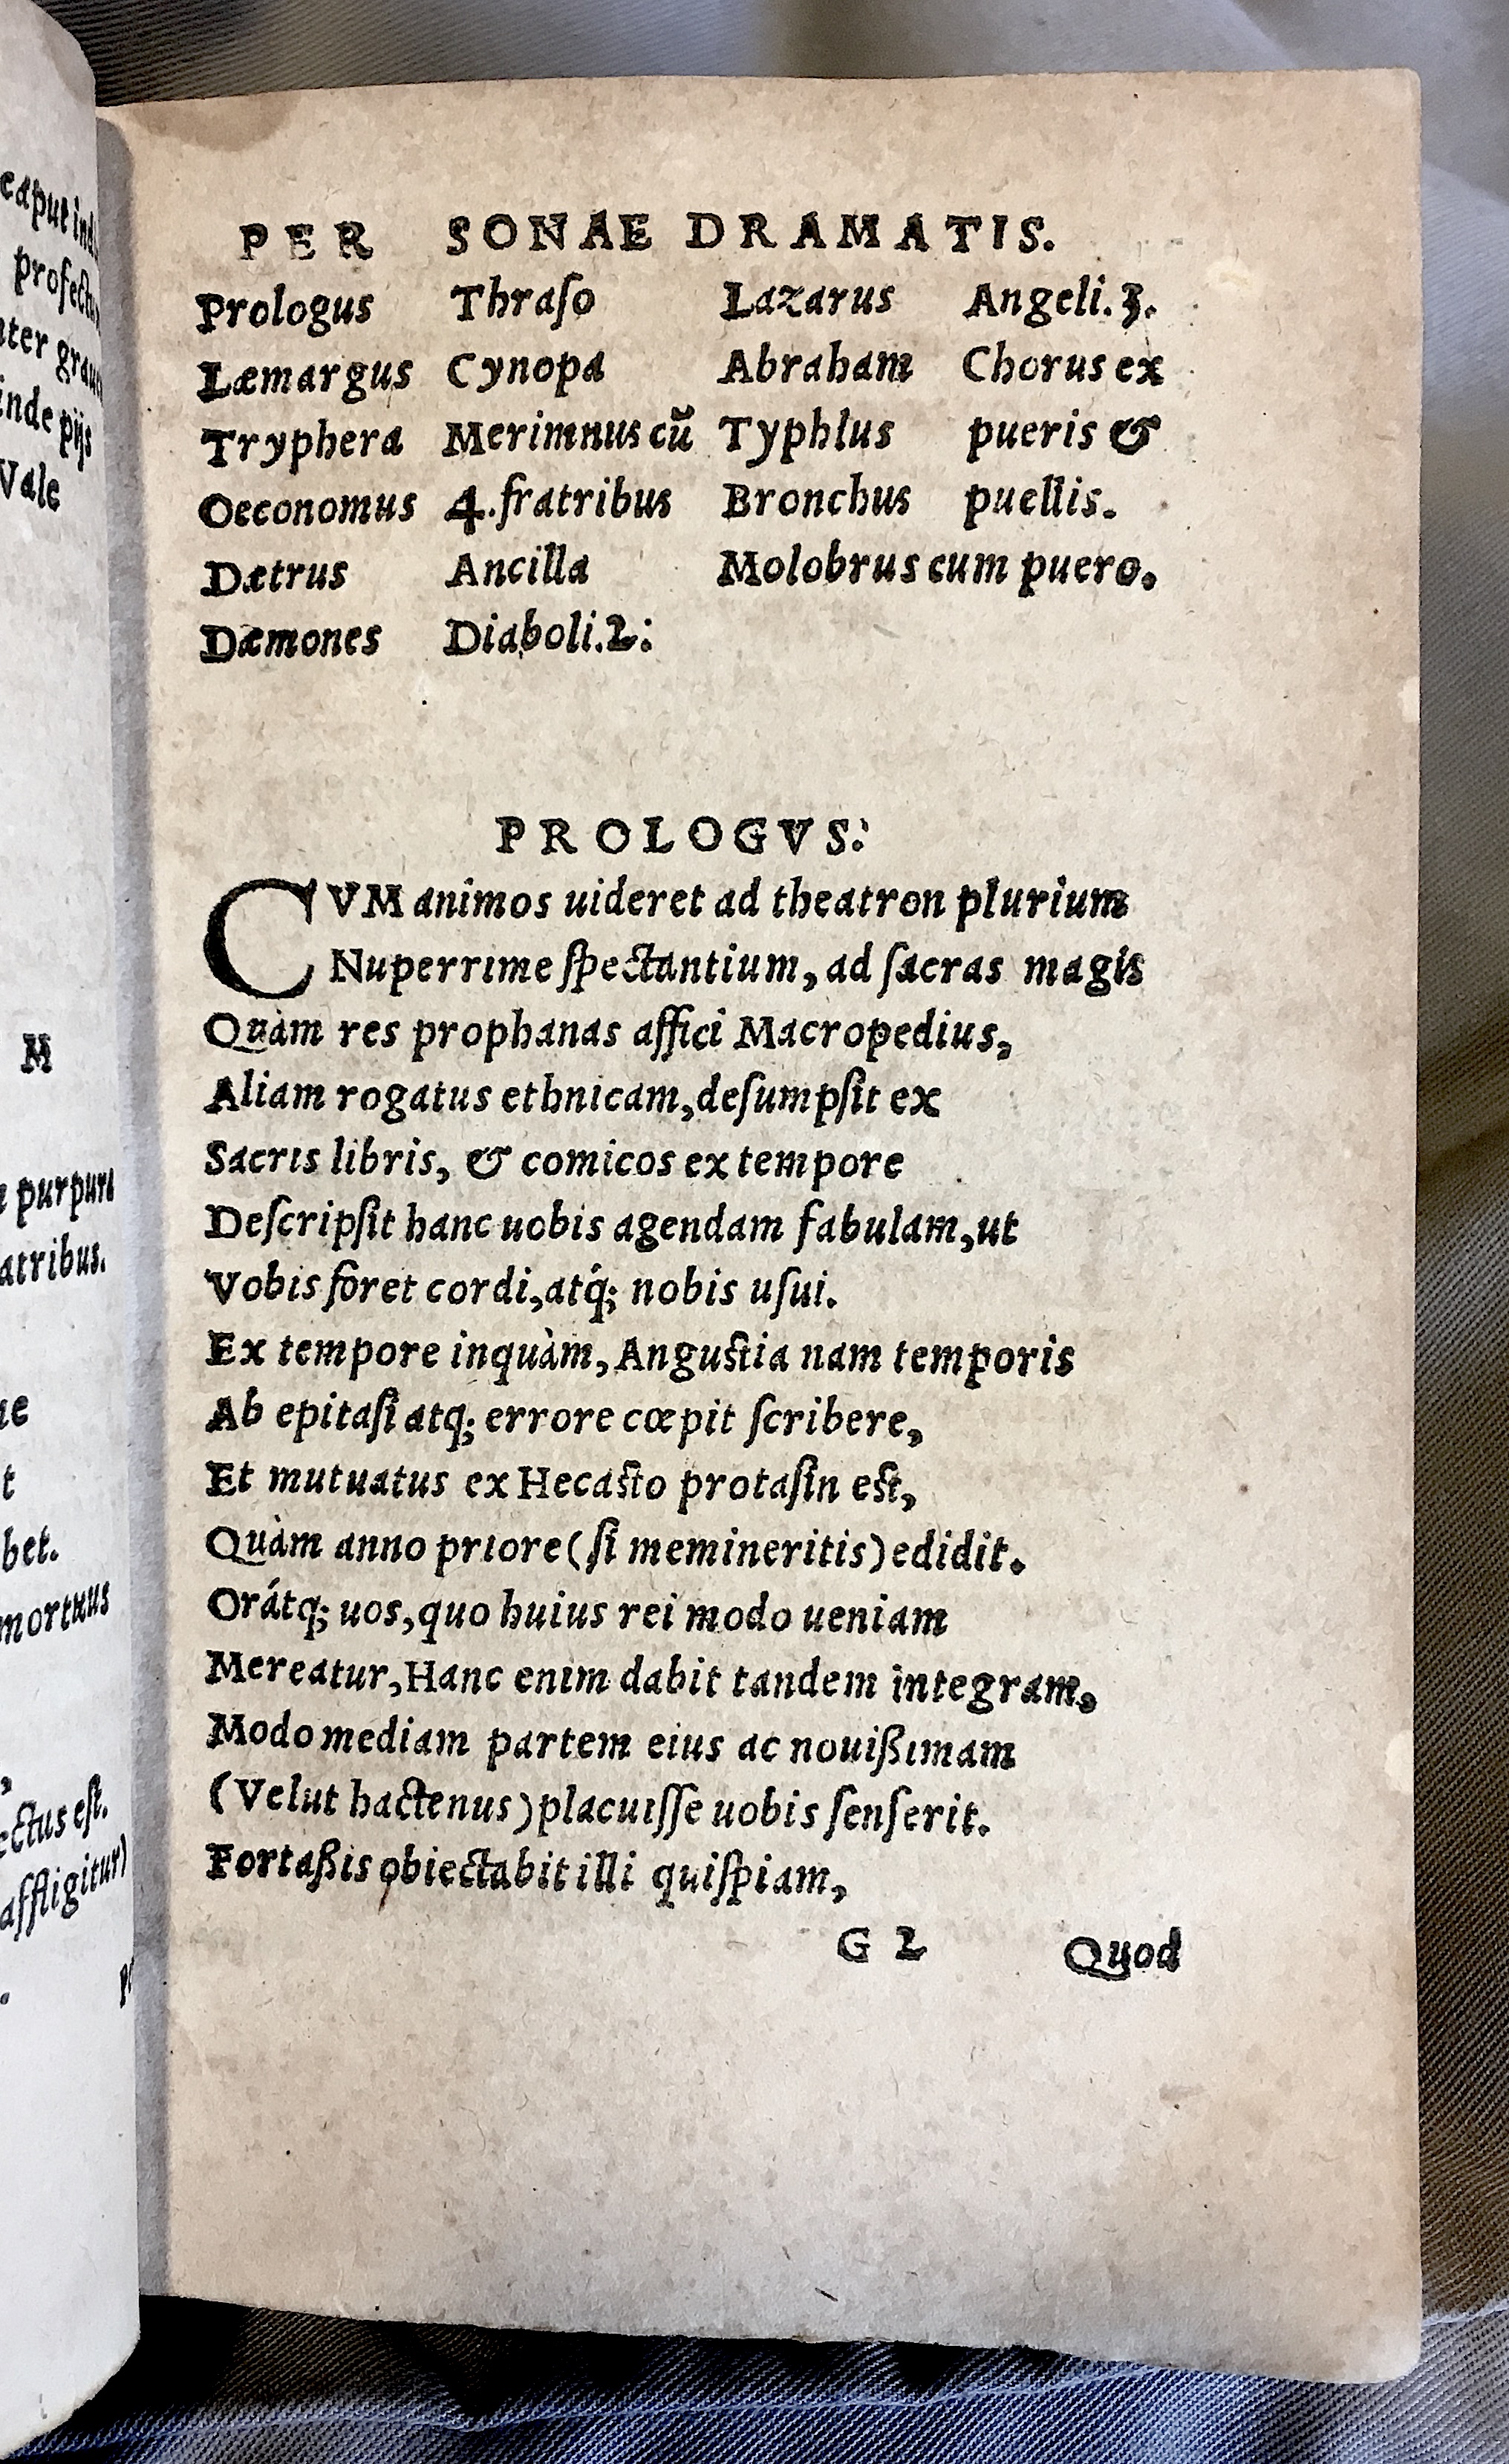 caput ind
profectu
nter grau
inde pijs
Vale
M
purpura
atribus.
ue
t
bet.
mortuus
ectus eſt.
affligitur)
PER SONAE DRAMATIS.
Prologus Thraſo Lazarus Angeli.3.
Læmargus Cynopa Abraham Chorus ex
Tryphera Merimnus cū Typhlus pueris &
Oeconomus 4.fratribus Bronchus puellis.
Dætrus Ancilla Molobrus cum puero.
Dæmones Diaboli.2:
PROLOGVS:
CVM animos uideret ad theatron plurium
Nuperrime ſpectantium, ad ſacras magis
Quàm res prophanas affici Macropedius,
Aliam rogatus ethnicam,deſumpſit ex
Sacris libris, & comicos ex tempore
Deſcripſit hanc uobis agendam fabulam,ut
Vobis foret cordi,atq́; nobis uſui.
Ex tempore inquàm, Anguſtia nam temporis
Ab epitaſi atq; errore cœpit ſcribere,
Et mutuatus ex Hecaſto protaſin eſt,
Quàm anno priore (ſi memineritis) edidit.
Orátq; uos, quo huius rei modo ueniam
Mereatur, Hanc enim dabit tandem integram,
Modo mediam partem eius ac nouißimam
(Velut hactenus) placuiſſe uobis ſenſerit.
Fortaßis obiectabit illi quiſpiam,
G 2 Quod